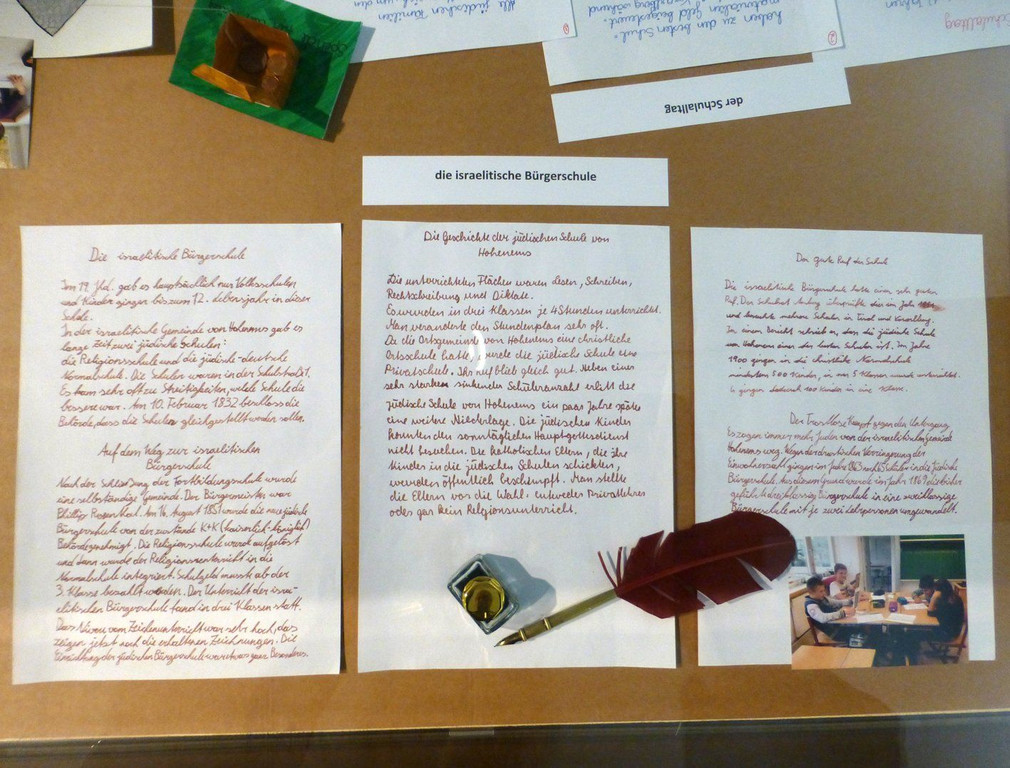 alle jüdischen Familien
haben zu den besten Schul-
materialien Geld beigesteuert."
Schulalltag
der Schulalltag
die israelitische Bürgerschule
Die israelitische Bürgerschule
Im 19. Jhd. gab es hauptsächlich nur Volksschulen
und Kinder gingen bis zum 12. Lebensjahr in diese
Schule.
In der israelitischen Gemeinde von Hohenems gab es
lange Zeit zwei jüdische Schulen:
die Religionsschule und die jüdische-deutsche
Normalschule. Die Schulen waren in der Schulstadt.
Es kam sehr oft zu Streitigkeiten, welche Schule die
bessere war. Am 10. Februar 1832 beschloss die
Behörde, dass die Schulen gleichgestellt werden sollen.
Auf dem Weg zur israelitischen
Bürgerschule
Nach der Schließung der Fortbildungsschule wurde
eine selbständige Gemeinde. Der Bürgermeister war
Phillip Rosenthal. Am 16. August 1851 wurde die neue jüdische
Bürgerschule von der zustände K+K (kaiserlich-königlich)
Behörde genehmigt. Die Religionsschule ward aufgelöst
und dann wurde der Religionsunterricht in die
Normalschule integriert. Schulgeld musst ab der
3. Klasse bezahlt werden. Der Unterricht der isra-
elitischen Bürgerschule fand in drei Klassen statt.
Das Niveau vom Zeichenunterricht war sehr hoch, das
zeigen jetzt noch die erhaltnen Zeichnungen. Die
Einrichtung der jüdischen Bürgerschule war etwas ganz Besonderes.
Die Geschichte der jüdischen Schule von
Hohenems
Die unterrichteten Flächen waren lesen, Schreiben,
Rechtschreibung und Diktate.
Es wurden in drei Klassen je 4 Stunden unterrichtet.
Man veranderte den Stundenplan sehr oft.
Da die Ortsgemeinde von Hohenems eine christliche
Ortsschule hatte, wurde die jüdische Schule eine
Privatschule. Ihr Ruf blieb gleich gut. Neben einer
sehr starken sinkender Schüleranzahl erlitt die
jüdische Schule von Hohenems ein paar Jahre später
eine weitere Niederlage. Die jüdischen Kinder
konnten den sonntäglichen Hauptgottesdienst
nicht besuchen. Die katholischen Eltern, die ihre
Kinder in die jüdischen Schulen schickten,
wurden öffentlich beschimpft. Man stellte
die Eltern vor die Wahl: entweder Privatlehrer
oder gar kein Religionsunterricht.
Der gute Ruf der Schule
Die israelitische Bürgerschule hatte einen sehr guten
Ruf. Der Schulrat überprüfte dies im Jahr
und besucht mehrere Schulen in Tirol und Vorarlberg.
In einem Bericht schrieb er, dass die jüdische Schule
von Hohenems einer der besten Schulen ist. Im Jahre
1900 gingen in die christliche Normalschule
mindestens 500 Kinder, in nur 5 Klassen wurde unterrichtet.
Es gingen dadurch 100 Kinder in eine Klasse.
Der Trostlose Kampf gegen den Untergang
Es zogen immer mehr Juden von der israelitischen Gemeinde
Hohenems weg. Wegen der drastischen Verringerung der
Einwohnerzahl gingen im Jahre 1863 noch 65 Schüler in die jüdische
Bürgerschule. Aus diesem Grund wurde im Jahre 1869 die bisher
geführte dreiklassige Bürgerschule in eine zweiklassige
Bürgerschule mit je zwei Lehrpersonen umgewandelt.